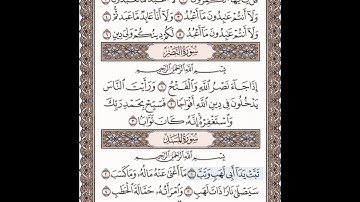 وَلَا أَنتُمْ عَابِدُونَ مَا أَعْبُدُ وَلَا أَنَا عَابِدٌ مَا عَبَدتُّمْ
وَلَا أَنتُمْ عَابِدُونَ مَا أَعْبُدُ لَكُمْ دِينُكُمْ وَلِيَ دِينِ
سُورَةُ النَّصْرِ
بِسْمِ اللَّهِ الرَّحْمَٰنِ الرَّحِيمِ
إِذَا جَاءَ نَصْرُ اللَّهِ وَالْفَتْحُ ١ وَرَأَيْتَ النَّاسَ
يَدْخُلُونَ فِي دِينِ اللَّهِ أَفْوَاجًا ٢ فَسَبِّحْ بِحَمْدِ رَبِّكَ
وَاسْتَغْفِرْهُ إِنَّهُ كَانَ تَوَّابًا ٣
سُورَةُ المَسَدِ
بِسْمِ اللَّهِ الرَّحْمَٰنِ الرَّحِيمِ
تَبَّتْ يَدَا أَبِي لَهَبٍ وَتَبَّ ١ مَا أَغْنَىٰ عَنْهُ مَالُهُ وَمَا كَسَبَ ٢
سَيَصْلَىٰ نَارًا ذَاتَ لَهَبٍ ٣ وَامْرَأَتُهُ حَمَّالَةَ الْحَطَبِ ٤